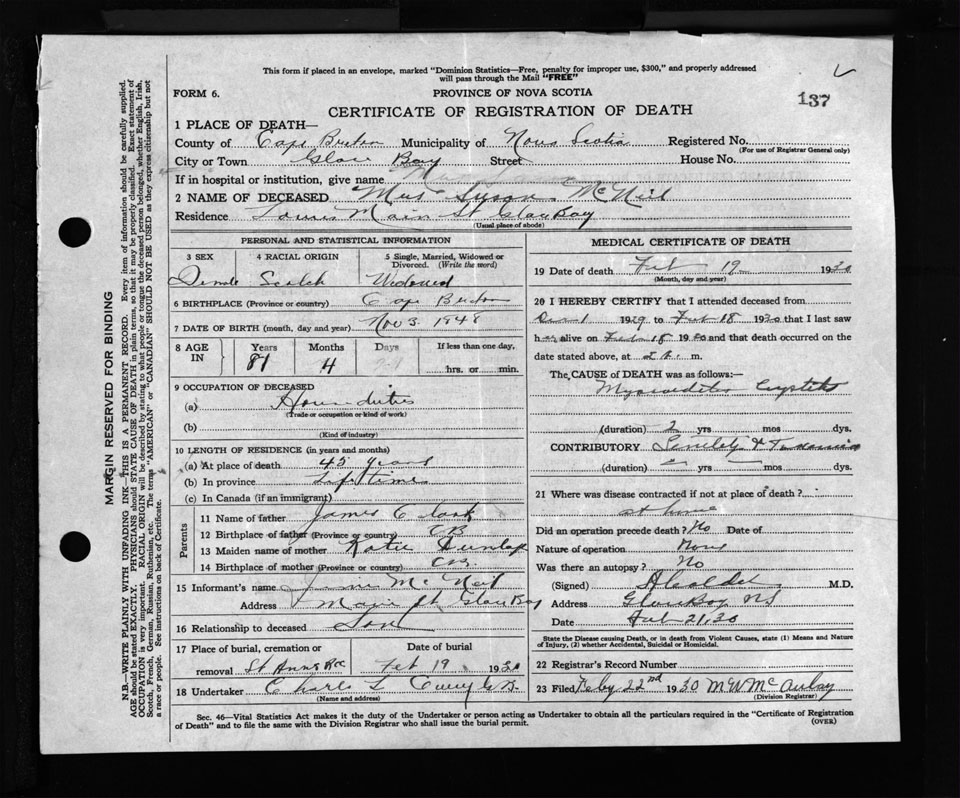 This form if placed in an envelope, marked "Dominion Statistics—Free, penalty for improper use, $300," and properly addressed
will pass through the Mail "FREE"
FORM 6.
PROVINCE OF NOVA SCOTIA
137
CERTIFICATE OF REGISTRATION OF DEATH
1 PLACE OF DEATH—
County of Cape Breton Municipality of Nova Scotia Registered No.
(For use of Registrar General only)
City or Town Glace Bay Street House No.
If in hospital or institution, give name
2 NAME OF DECEASED Mrs Susan McNeil
Residence Main St Glace Bay
(Usual place of abode)
PERSONAL AND STATISTICAL INFORMATION
3 SEX 4 RACIAL ORIGIN 5 Single, Married, Widowed or Divorced. (Write the word)
Female Scotch Widowed
6 BIRTHPLACE (Province or country) Cape Breton
7 DATE OF BIRTH (month, day and year) Nov 3. 1848
8 AGE IN Years Months Days If less than one day,
81 4 hrs. or min.
9 OCCUPATION OF DECEASED
(a) House duties
(Trade or occupation or kind of work)
(b)
(Kind of industry)
10 LENGTH OF RESIDENCE (in years and months)
(a) At place of death 45 years
(b) In province Life time
(c) In Canada (if an immigrant)
Parents
11 Name of father James Clark
12 Birthplace of father (Province or country) CB
13 Maiden name of mother Katie Dunlap
14 Birthplace of mother (Province or country) C.B.
15 Informant's name James McNeil
Address Main St Glace Bay
16 Relationship to deceased Son
17 Place of burial, cremation or removal Date of burial
St Anns Feb 19 1930
18 Undertaker Charles L
(Name and address)
MEDICAL CERTIFICATE OF DEATH
19 Date of death Feb 19 1930
(Month, day and year)
20 I HEREBY CERTIFY that I attended deceased from
Dec 1 1929 to Feb 18 1930 that I last saw
her alive on Feb 18 1930 and that death occurred on the
date stated above, at m.
The CAUSE of DEATH was as follows:—
(duration) 2 yrs mos dys.
CONTRIBUTORY Senility &
(duration) yrs mos dys.
21 Where was disease contracted if not at place of death?
at home
Did an operation precede death? No Date of
Nature of operation None
Was there an autopsy? No
(Signed) M.D.
Address Glace Bay NS
Date Feb 21, 30
State the Disease causing Death, or in death from Violent Causes, state (1) Means and Nature
of Injury, (2) whether Accidental, Suicidal or Homicidal.
22 Registrar's Record Number
23 Filed Feby 22nd 1930 M W McAulay
(Division Registrar)
Sec. 46—Vital Statistics Act makes it the duty of the Undertaker or person acting as Undertaker to obtain all the particulars required in the "Certificate of Registration
of Death" and to file the same with the Division Registrar who shall issue the burial permit.
(OVER)
MARGIN RESERVED FOR BINDING
N.B.—WRITE PLAINLY WITH UNFADING INK—THIS IS A PERMANENT RECORD. Every item of information should be carefully supplied.
AGE should be stated EXACTLY. PHYSICIANS should STATE CAUSE OF DEATH in plain terms, so that it may be properly classified. Exact statement of
OCCUPATION is very important. RACIAL ORIGIN will be described by stating to what people or tongue the deceased person belonged, whether English, Irish,
Scotch, French, German, Russian, Ruthenian, etc. The terms "AMERICAN" or "CANADIAN" SHOULD NOT BE USED as they express citizenship but not
a race or people. See instructions on back of Certificate.